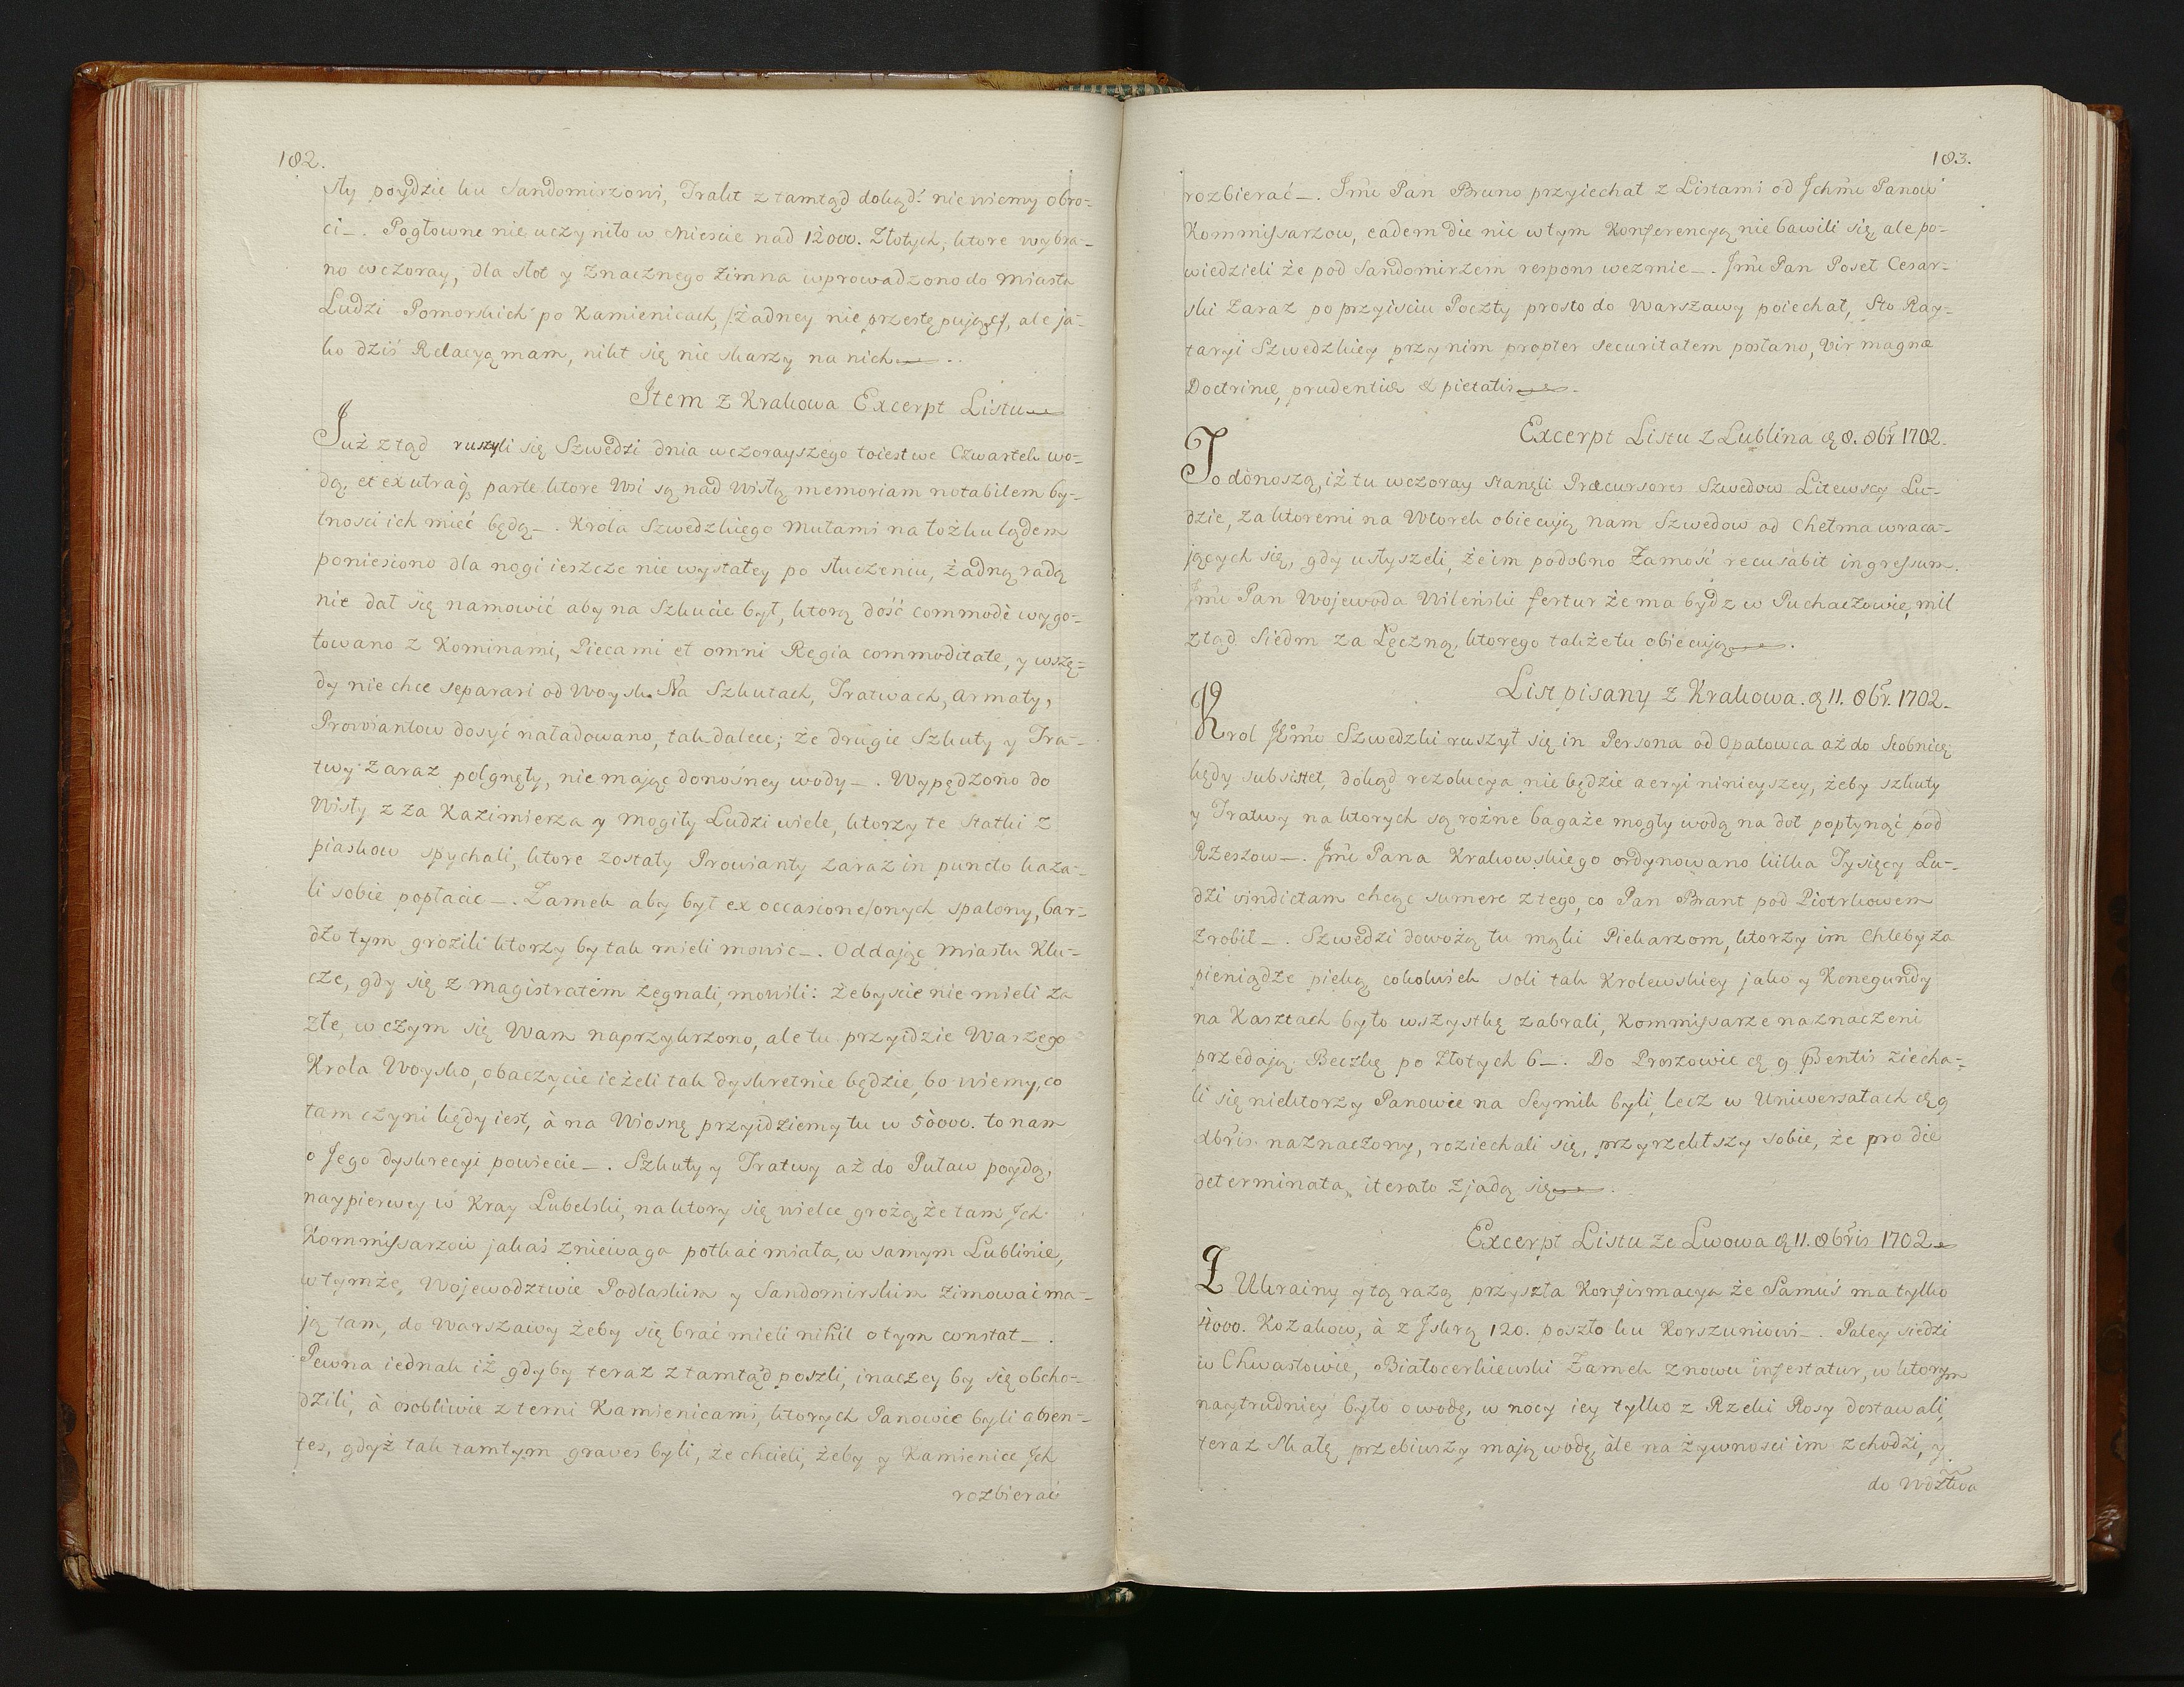 182.
sły poydzie ku Sandomirzowi, Trakt z tamtąd dokąd? nie wiemy obro-
ci_. Pogłowne nie uczyniło w Miescie nad 12000. Złotych, ktore wybra-
no wczoray, dla słot y znacznego Zimna wprowadzono do Miasta
Ludzi Pomorskich po Kamienicach, żadney nie przestępując, ale ja-
ko dziś Relacyą mam, nikt się nie skarzy na nich
Item z Krakowa Excerpt Listu
Już z tąd ruszyli się Szwedzi dnia wczorayszego toiest we Czwartek wo-
dą, et ex utraq parte ktore Wsi są nad Wisłą memoriam notabilem by-
tnosci ich mieć będą_. Krola Szwedzkiego Mułami na łożku lądem
poniesiono dla nogi ieszcze nie wystałey po stłuczeniu, żadną radą
nie dał się namowić aby na Szkucie był, ktorą dość commodè wygo-
towano z Kominami, Piecami et omni Regia commoditate, y wszę-
dy nie chce separari od Woysk. Na Szkutach, Tratwach, Armaty,
Prowiantow dosyć naładowano, tak dalece; że drugie Szkuty y Tra-
twy zaraz polgnęły, nie mając donośney wody_. Wypędzono do
Wisły z za Kazimierza y Mogiły Ludzi wiele, ktorzy te Statki z
piaskow spychali, ktore zostały Prowianty zaraz in puncto kaza-
li sobie popłacic_. Zamek aby był ex occasione onych spalony, bar-
dzo tym grozili ktorzy by tak mieli mowic_. Oddając Miastu Klu-
cze, gdy się z Magistratem żegnali, mowili: żebyscie nie mieli za
złe, w czym się Wam naprzykrzono, ale tu przyidzie Waszego
Krola Woysko, obaczycie ieżeli tak dyskretnie będzie, bo wiemy, co
tam czyni kędy iest, à na Wiosnę przyidziemy tu w 50000. to nam
o Jego dyskrecyi powiecie_. Szkuty y Tratwy aż do Puław poydą,
naypierwey w Kray Lubelski, na ktory się wielce grożą, że tam Jch
Kommissarzow jakaś zniewaga potkać miała, w samym Lublinie,
w tymże, Wojewodztwie Podlaskim y Sandomirskim zimować ma-
ją tam, do Warszawy żeby się brać mieli nihil o tym constat_.
Pewna iednak iż gdyby teraz z tamtąd poszli, inaczey by się obcho-
dzili, à osobliwie z temi Kamienicami, ktorych Panowie byli absen-
tes, gdyż tak tamtym graves byli, że chcieli, żeby y Kamienice Jch
rozbierać
183.
rozbierać_. Jmć Pan Bruno przyiechał z Listami od Jchmć Panow
Kommissarzow, eadem die nic w tym Konferencyą nie bawili się, ale po-
wiedzieli że pod Sandomirzem respons wezmie_. Jmć Pan Poseł Cesar-
ski zaraz po przyisciu Poczty prosto do Warszawy poiechał, Sto Ray-
taryi Szwedzkiey przy nim propter securitatem posłano, Vir magnæ
Doctrinæ, prudentiæ & pietatis
Excerpt Listu z Lublina d. 8. 8br. 1702.
To donoszą, iż tu wczoray stanęli Præcursores Szwedow Litewscy Lu-
dzie, za ktoremi na Wtorek obiecują nam Szwedow od Chełma wraca-
jących się, gdy usłyszeli, że im podobno Zamość recusabit ingressum.
Jmć Pan Wojewoda Wileński fertur że ma bydz w Puchaczowie, mil
z tąd siedm za Łęczną, ktorego także tu obiecują
List pisany z Krakowa. d. 11. 8br. 1702.
Krol Jº.mć Szwedzki ruszył się in Persona od Opatowca aż do Stobnicę
kędy subsistet, dokąd rezolucya nie będzie aeryi ninieyszey, żeby szkuty
y Tratwy na ktorych są rożne bagaże mogły wodą na doł popłynąć pod
Rzeszow_. Jmć Pana Krakowskiego ordynowano kilka Tysięcy Lu-
dzi vindictam chcąc sumere z tego, co Pan Brant pod Piotrkowem
zrobił_. Szwedzi dowożą tu mąki Piekarzom, ktorzy im Chleby za
pieniądze pieką cokolwiek soli tak Krolewskiey jako y Konegundy
na Kasztach było wszystkę zabrali, Kommissarze naznaczeni
przedają Beczkę po Złotych 6_. Do Proszowic d. 9 Præsentis ziecha-
li się niektorzy Panowie na Seymik byli, lecz w Uniwersałach d. 9
Xbris naznaczony, roziechali się, przyrzekłszy sobie, że pro die
determinata, iterato zjadą się
Excerpt Listu ze Lwowa d. 11. 8bris 1702
Z Ukrainy y tą razą przyszła Konfirmacya że Samuś ma tylko
4000. Kozakow, à z Iskrą 120. poszło ku Korszuniowi_. Paley siedzi
w Chwastowie, Białocerkiewski Zamek znowu infestatur, w ktorym
naytrudniey było o wodę, w nocy iey tylko z Rzeki Rosy dostawali,
teraz Skałę przebiwszy mają wodę, ale na żywnosci im zchodzi, y
do Woztwa